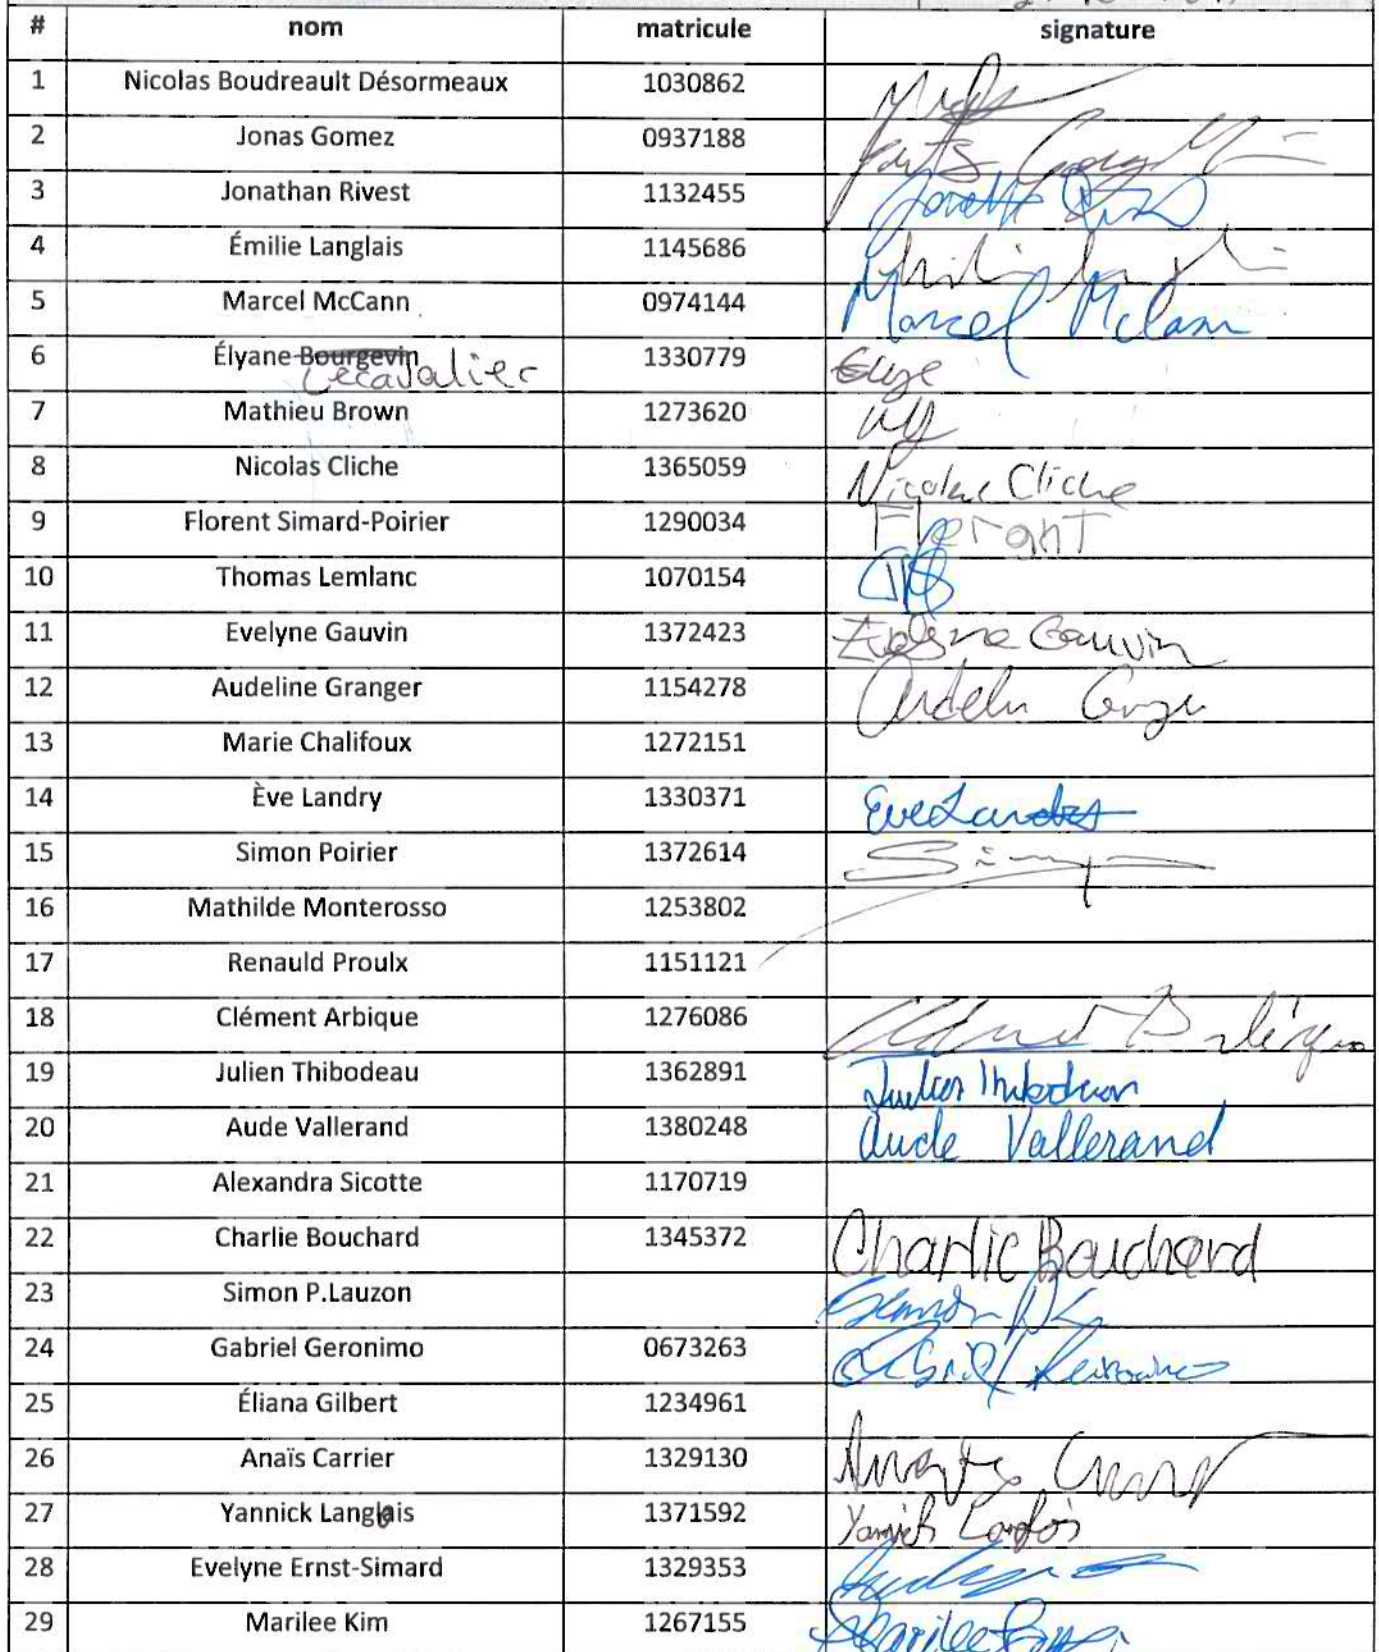 # nom matricule signature
1 Nicolas Boudreault Désormeaux 1030862
2 Jonas Gomez 0937188
3 Jonathan Rivest 1132455
4 Émilie Langlais 1145686
5 Marcel McCann 0974144 Marcel McCann
6 Élyane Bourgevin 1330779
Lecavalier
7 Mathieu Brown 1273620
8 Nicolas Cliche 1365059 Nicolas Cliche
9 Florent Simard-Poirier 1290034
10 Thomas Lemlanc 1070154
11 Evelyne Gauvin 1372423 Evelyne Gauvin
12 Audeline Granger 1154278
13 Marie Chalifoux 1272151
14 Ève Landry 1330371 Eve Landry
15 Simon Poirier 1372614
16 Mathilde Monterosso 1253802
17 Renauld Proulx 1151121
18 Clément Arbique 1276086
19 Julien Thibodeau 1362891 Julien Thibodeau
20 Aude Vallerand 1380248 Aude Vallerand
21 Alexandra Sicotte 1170719
22 Charlie Bouchard 1345372 Charlie Bouchard
23 Simon P.Lauzon
24 Gabriel Geronimo 0673263
25 Éliana Gilbert 1234961
26 Anaïs Carrier 1329130
27 Yannick Langlois 1371592 Yannick Langlois
28 Evelyne Ernst-Simard 1329353
29 Marilee Kim 1267155